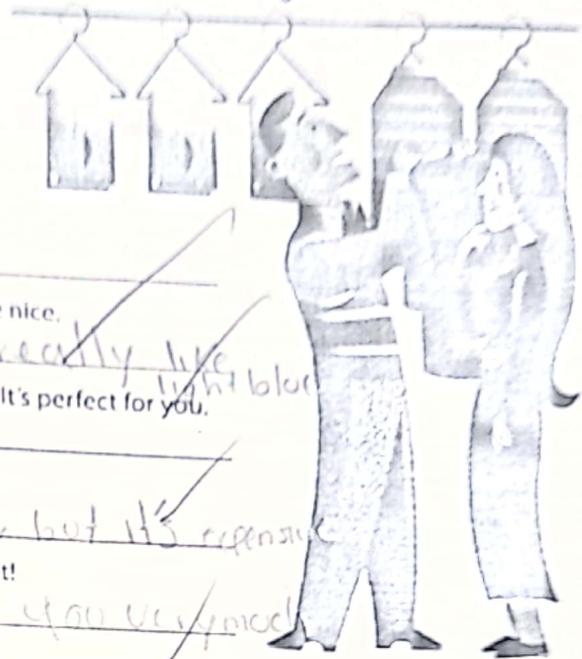 e nice.
really like
light blue
It's perfect for you.
, but it's expensive
t!
you very much